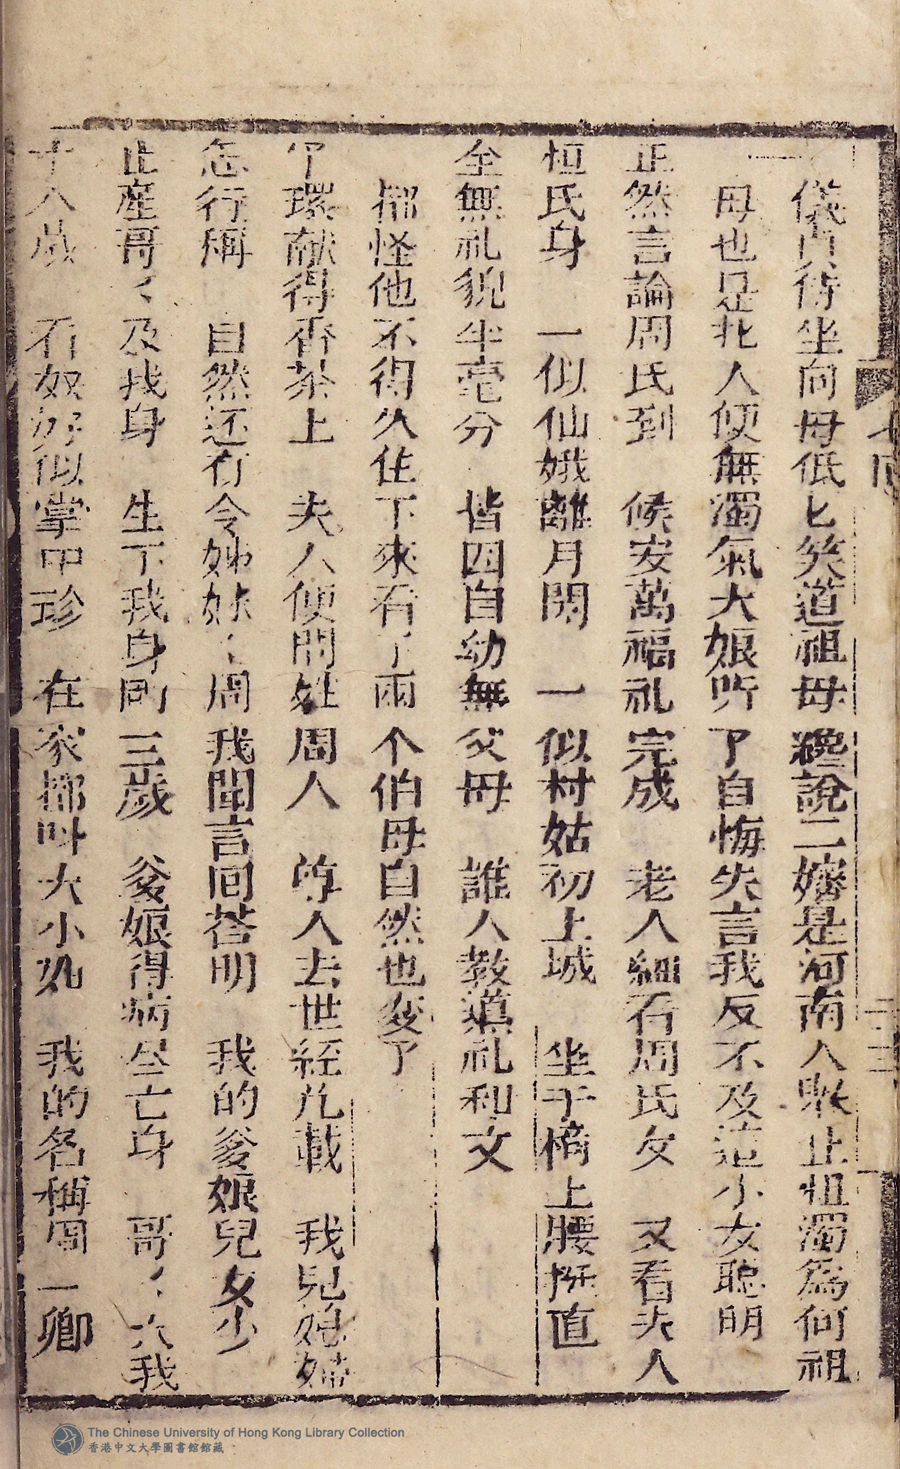 儀貞待坐向母低匕笑道祖母纔說二嬸是河南人擧止粗濁為何祖
母也是北人便無濁氣大娘听了自悔失言我反不及這小女聰明
正然言論周氏到　候安萬福礼完成　老人細看周氏女　又看夫人
恒氏身　一似仙娥離月閣　一似村姑初上城　坐于椅上腰挺直
全無礼貌半毫分　皆因自幼無父母　誰人教道礼和文
都怪他不得久住下來看了兩个伯母自然也变了
了環献得香茶上　夫人便問姓周人　尊人去世経几載　我兒媳婦
怎行稱　自然还有令姊妹　周我聞言囘荅明　我的爹娘兒女少
止產哥〻及我身　生下我身剛三歲　爹娘得病尽亡身　哥〻大我
十八歲　看奴好似掌中珍　在家都叫大小姐　我的名稱周一卿
七囘
The Chinese University of Hong Kong Library Collection
香港中文大學圖書館館藏